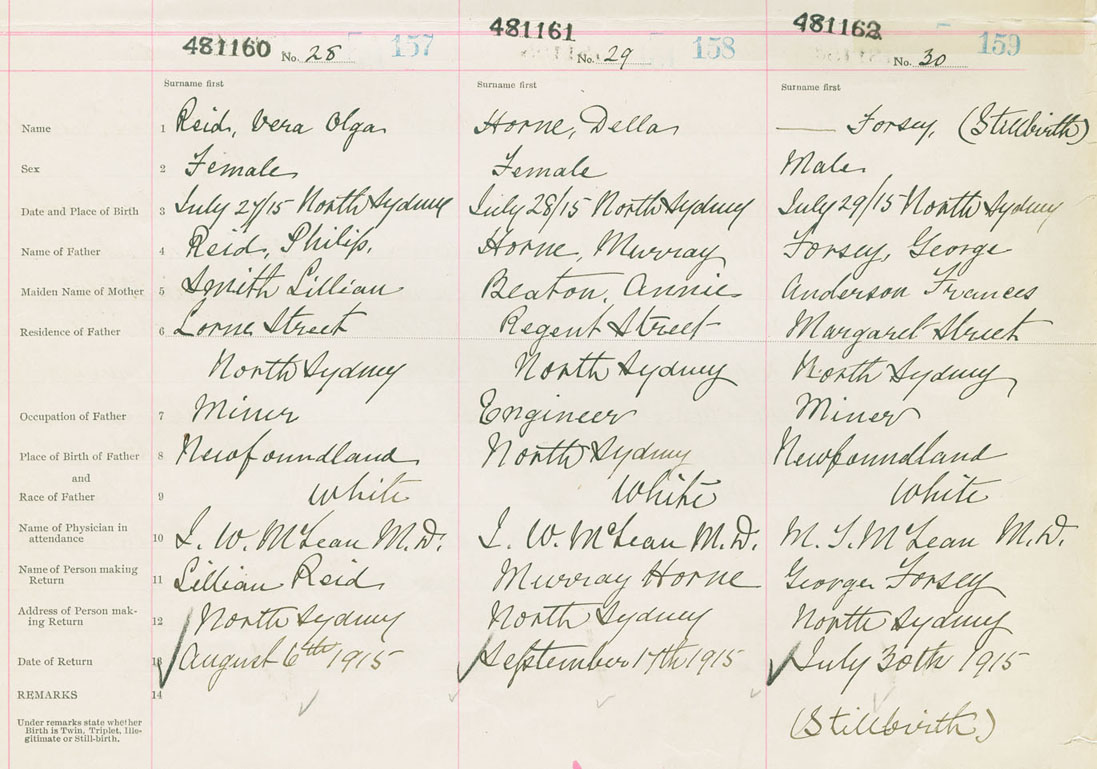 481160 No. 28 157 481161 No. 29 158 481162 No. 30 159
Surname first Surname first Surname first
Name 1 Reid, Vera Olga Horne, Della —— Forsey, (Stillbirth)
Sex 2 Female Female Male
Date and Place of Birth 3 July 27/15 North Sydney July 28/15 North Sydney July 29/15 North Sydney
Name of Father 4 Reid, Philip, Horne, Murray Forsey, George
Maiden Name of Mother 5 Smith Lillian Beaton, Annie Anderson Frances
Residence of Father 6 Lorne Street Regent Street Margaret Street
North Sydney North Sydney North Sydney
Occupation of Father 7 Miner Engineer Miner
Place of Birth of Father 8 Newfoundland North Sydney Newfoundland
and
Race of Father 9 White White White
Name of Physician in attendance 10 L. W. McLean M.D. L. W. McLean M.D. M. T. McLean M.D.
Name of Person making Return 11 Lillian Reid Murray Horne George Forsey
Address of Person mak-ing Return 12 North Sydney North Sydney North Sydney
Date of Return 13 August 6th 1915 September 17th 1915 July 30th 1915
REMARKS 14
Under remarks state whether
Birth is Twin, Triplet, Ille-
gitimate or Still-birth.
(Stillbirth.)